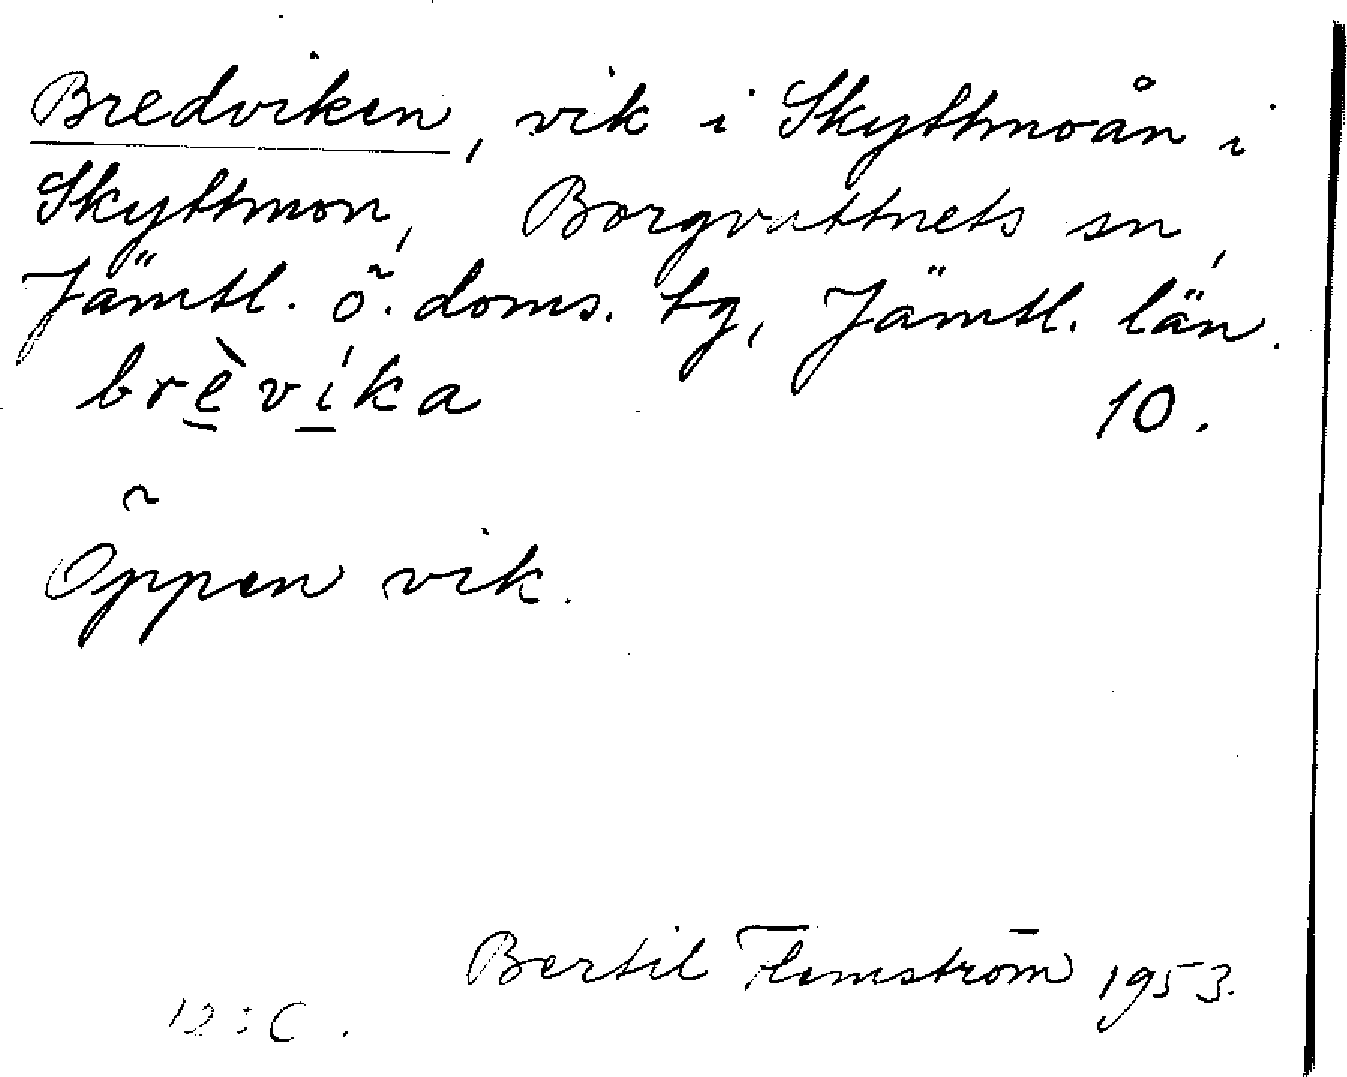 Bredviken, vik i Skyttmoån i
Skyttmon, Borgvattnets sn,
Jämtl. ö. doms. tg, Jämtl. län.
brèvíka 10.
Öppen vik.
Bertil Flemström 1953.
12:C.